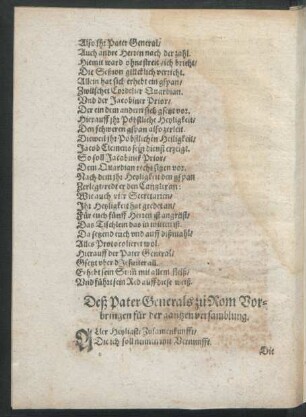 Also Ihr Pater General/
Auch andre Herren nach der zahl.
Hiemit ward ohne streit sich bricht/
Die Session glücklich verricht.
Allein hat sich erhebt ein gspan/
Zwischen Cordelier Quardian.
Und der Jacobiner Prior/
Der ein dem andern sich gsetz vor.
Hierauff ihr Päpstliche Heyligkeit/
Den schweren gspan also zerleit.
Dieweil ihr Päbstlichen Heiligkeit/
Jacob Clemens sein dienst erzeigt.
So soll Jacobiner Prior/
Dem Quardian rechts sitzen vor.
Nach dem ihr Heyligkeit den gspan
Zerlegt/redt er den Cantzler an:
Wie auch vier Secretarien/
Ihr Heyligkeit hat gredet an/
Für euch fünff Herren ist angricht/
Das Tischlein das in mitten ist.
Da sitzend euch und auff dißmahl/
Alles Protocolieret wol.
Hierauff der Pater General/
Gsetzt über d'Jesuiter all.
Erhebt sein Stim mit allem fleiß/
Und führt sein Red auff diese weiß.
Deß Pater Generals zu Rom Vor-
bringen für der gantzen versamblung.
Aller Heyligste Zusamenkunffte/
Die ich soll nennen von Vernunffte.
Die